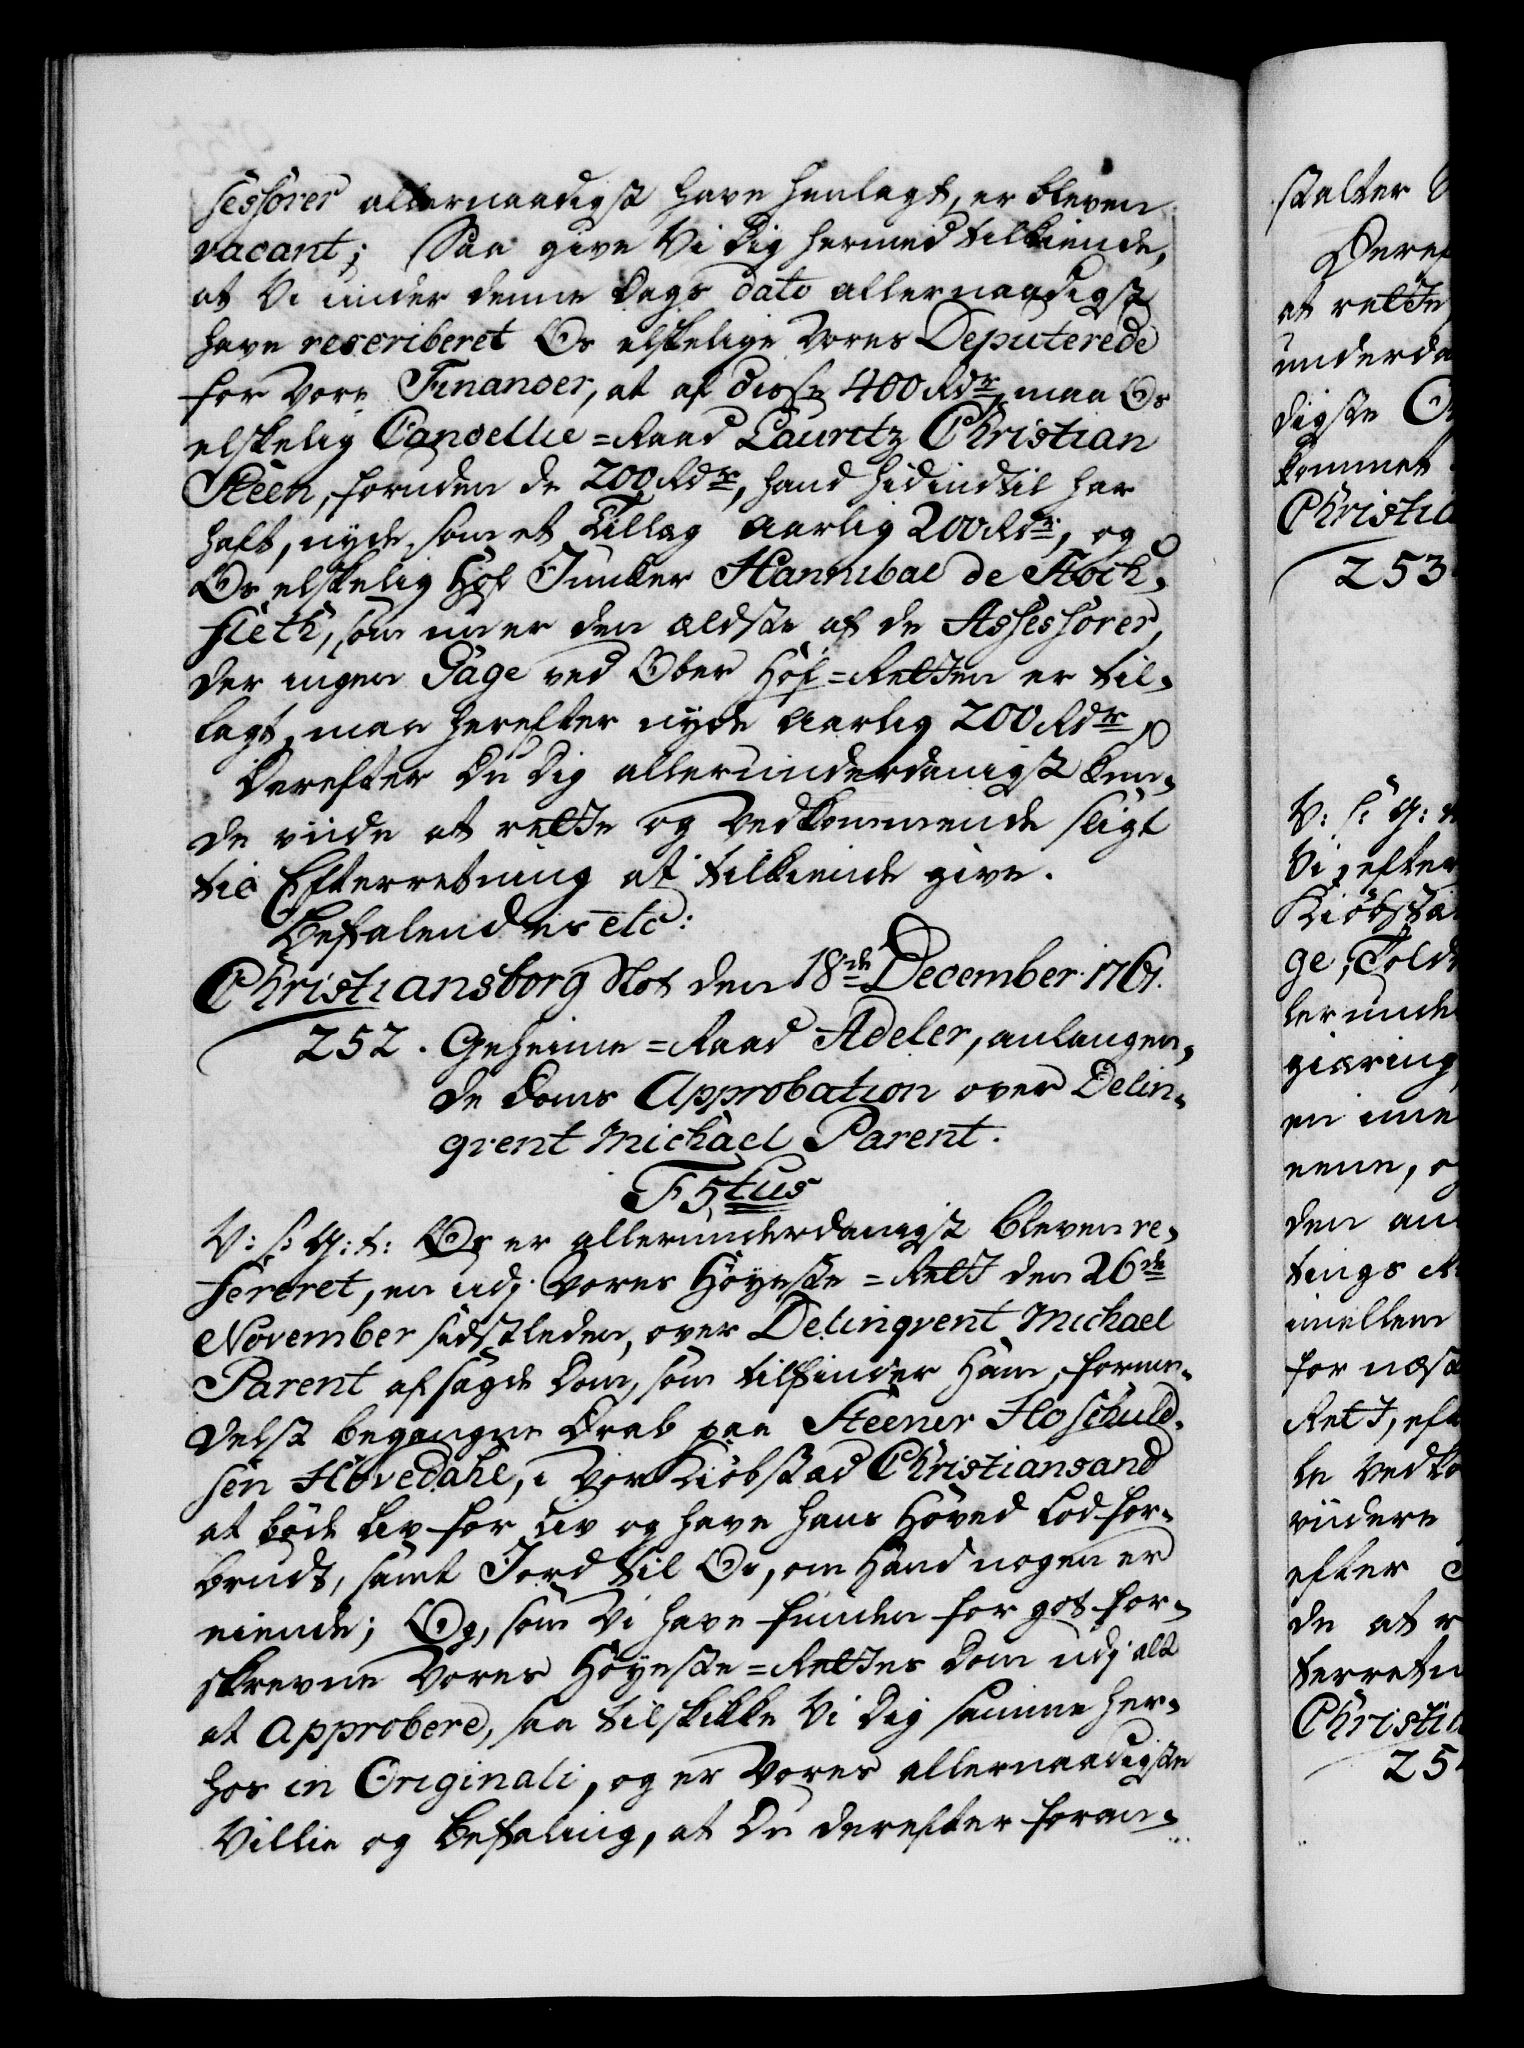 sessorer allernaadigst have henlagt, er bleven
vacant; Saa give Vi Dig hermed tilkiende,
at Vi under denne Dags dato allernaadigst
have rescriberet Os elskelige Vores Deputerede
for Vore Finanser, at af disse 400 Rdr, maa Os
elskelig Cancellie=Raad Lauritz Christian
Steen, foruden de 200 Rdr, hand hidindtil har
haft, nyde som et Tillæg aarlig 200 Rdr, og
Os elskelig Hof Juncker Hannibal de Stock-
fleth, som nu er den ældste af de Assessorer,
der ingen Gage ved Ober Hof=Retten er til-
lagt, maa herefter nyde aarlig 200 Rdr
Derefter Du Dig allerunderdanigst kun-
de viide at rette og Vedkommende sligt
til Efterretning at tilkiende give.
Befalendes etc:
Christiansborg Slot den 18de December 1761.
252. Geheime=Raad Adeler, anlangen-
de Doms Approbation over Delin-
qvent Michael Parent.
F 5tus
V: S: G: t: Os er allerunderdanigst bleven re-
fereret, en udj Vores Höyeste=Rett den 26de
November sidstleden, over Delinqvent Michael
Parent afsagde Dom, som tilfinder ham, forme-
delst begangne Drab paa Steener Hoschuld-
sen Hovedahl, i Vor Kiöbstad Christiansand
at böde Liv for Liv og have hans Hoved Lod for-
brudt, samt Jord til Os, om hand nogen er
eiende; Og, som Vi have funden for got for-
skrevne Vores Höyeste=Rettes Dom udj alt
at approbere, saa tilskikke Vi Dig samme her-
hos in Originali, og er Vores allernaadigste
Villie og Befaling, at Du derefter foran-
stalter
at rette
underda
digste
kommet
Christia
253
V: S: G:
Vi, efter
Kiöbsta
ge, Told
ler unde
giæring
en
den an
tings
imellem
for næst
Rett, eft
le Vedko
viidere
efter
de at r
terretn
Christia
25